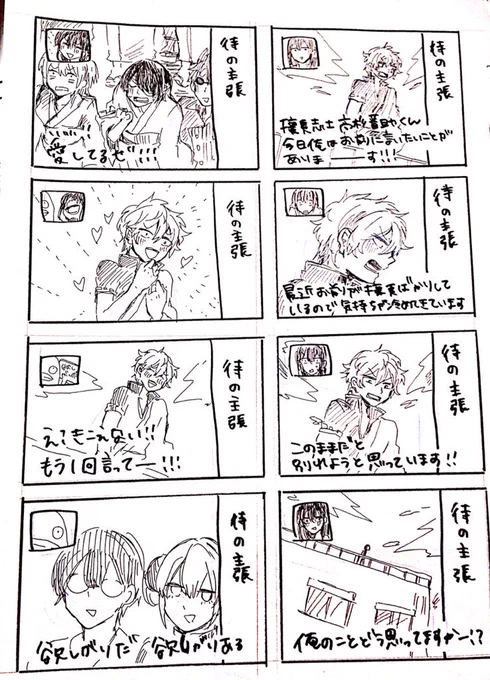 侍の主張
攘夷志士 高杉晋助くん
今日俺はお前に言いたいことが
ありまーーす!!!
侍の主張
最近お前が攘夷ばかりして
いるので気持ちが冷めてきています
侍の主張
このままだと
別れようと思っています!!
侍の主張
俺のことどう思ってますかー!?
侍の主張
愛してるぜ!!!
侍の主張
侍の主張
え?きこえない!!
もう1回言ってー!!!
侍の主張
欲しがりだ
欲しがりある